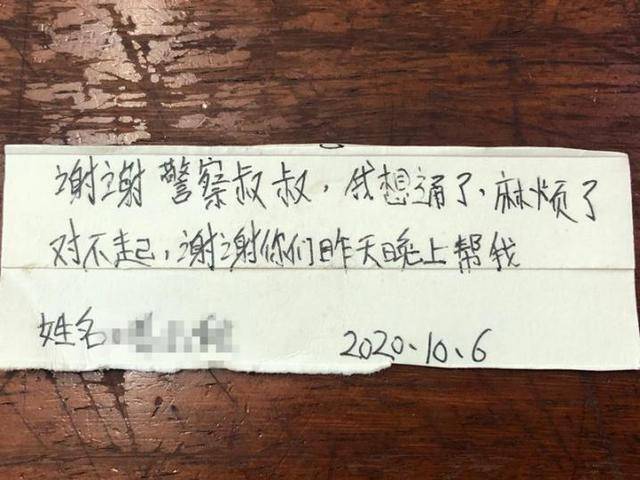 谢谢警察叔叔，我想通了、麻烦了
对不起，谢谢你们昨天晚上帮我
姓名
2020.10.6